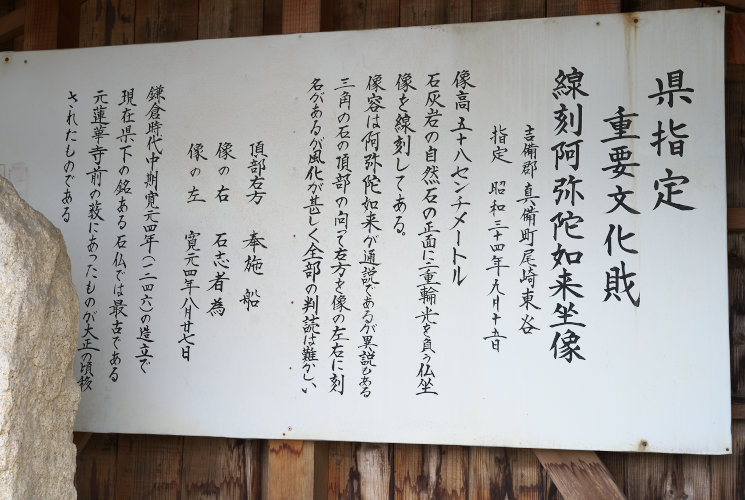 県指定
重要文化財
線刻阿弥陀如来坐像
吉備郡真備町尾崎東谷
指定 昭和三十四年九月十五日
像高 五十八センチメートル
石灰岩の自然石の正面に二重輪光を負う仏坐
像を線刻してある。
像容は阿弥陀如来が通説であるが異説もある
三角の石の頂部の向って右方を像の左右に刻
名があるが風化が甚しく全部の判読は難かしい
頂部右方 奉施 船
像の右 石志者為
像の左 寛元四年八月廿七日
鎌倉時代中期寛元四年(一二四六)の造立で
現在県下の銘ある石仏では最古である
元蓮華寺前の薮にあったものが大正の頃移
されたものである